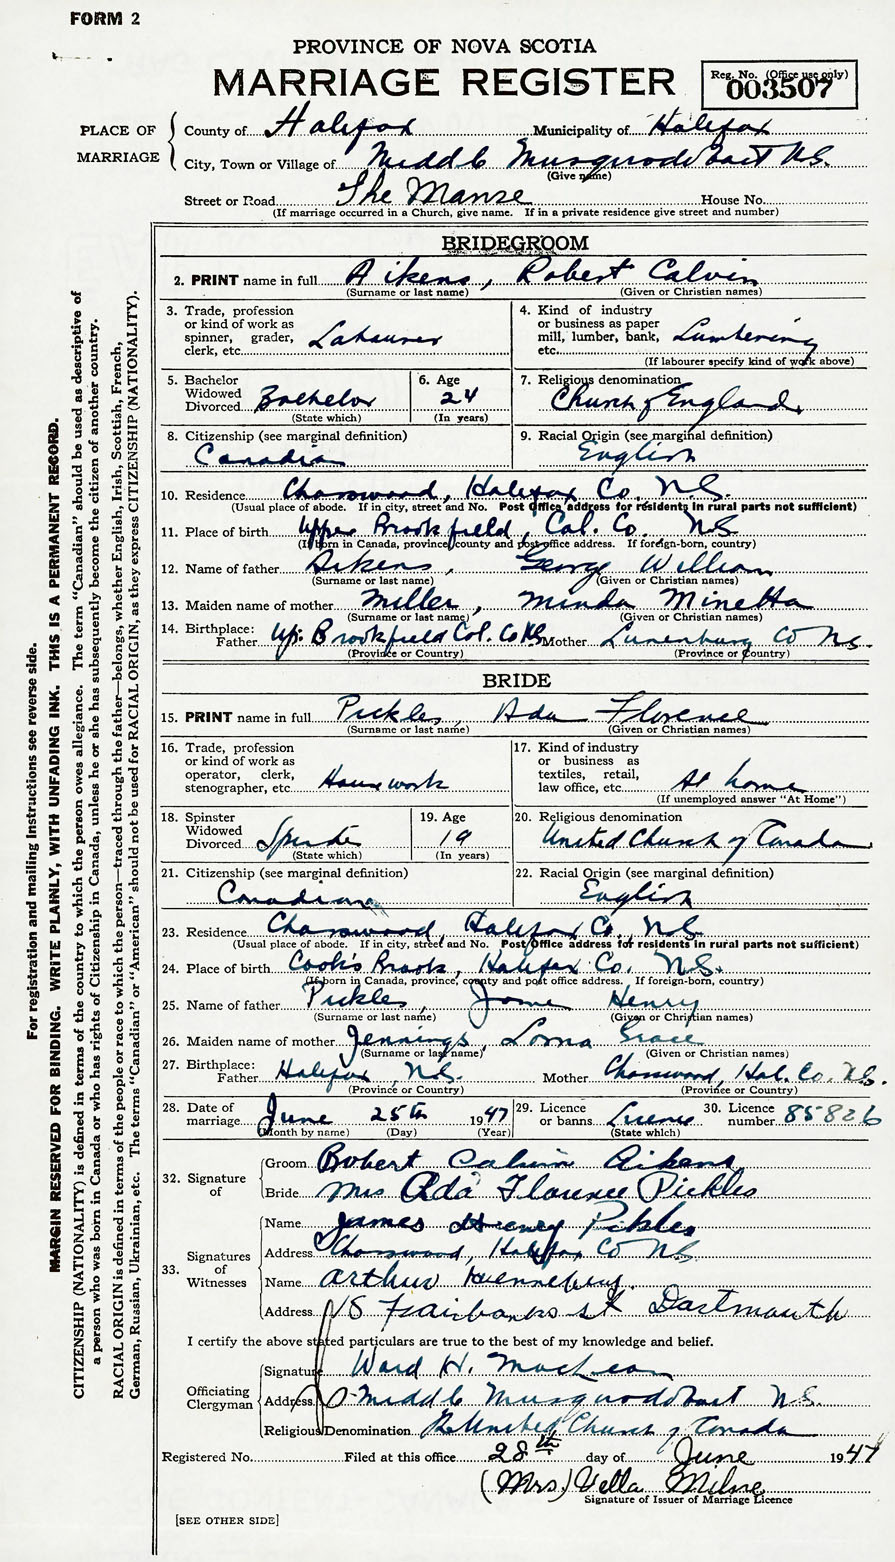 FORM 2
PROVINCE OF NOVA SCOTIA
MARRIAGE REGISTER
Reg. No. (Office use only)
003507
PLACE OF MARRIAGE
County of Halifax Municipality of Halifax
City, Town or Village of Middle Musquodoboit N.S.
(Give name)
Street or Road The Manse House No.
(If marriage occurred in a Church, give name. If in a private residence give street and number)
BRIDEGROOM
2. PRINT name in full Aikens, Robert Calvin
(Surname or last name) (Given or Christian names)
3. Trade, profession or kind of work as spinner, grader, clerk, etc. Labourer
4. Kind of industry or business as paper mill, lumber, bank, etc. Lumbering
(If labourer specify kind of work above)
5. Bachelor Widowed Divorced Bachelor
(State which)
6. Age 24
(In years)
7. Religious denomination
Church of England
8. Citizenship (see marginal definition)
Canadian
9. Racial Origin (see marginal definition)
English
10. Residence Chaswood, Halifax Co. N.S.
(Usual place of abode. If in city, street and No. Post Office address for residents in rural parts not sufficient)
11. Place of birth Upper Brookfield, Col. Co. N.S.
(If born in Canada, province, county and post office address. If foreign-born, country)
12. Name of father Aikens, George William
(Surname or last name) (Given or Christian names)
13. Maiden name of mother Miller, Minda Minetta
(Surname or last name) (Given or Christian names)
14. Birthplace: Father Up. Brookfield Col. Co NS Mother Lunenburg Co NS.
(Province or Country) (Province or Country)
BRIDE
15. PRINT name in full Pickles, Ada Florence
(Surname or last name) (Given or Christian names)
16. Trade, profession or kind of work as operator, clerk, stenographer, etc. Housework
17. Kind of industry or business as textiles, retail, law office, etc. At home
(If unemployed answer "At Home")
18. Spinster Widowed Divorced Spinster
(State which)
19. Age 19
(In years)
20. Religious denomination
United Church of Canada
21. Citizenship (see marginal definition)
Canadian
22. Racial Origin (see marginal definition)
English
23. Residence Chaswood, Halifax Co. N.S.
(Usual place of abode. If in city, street and No. Post Office address for residents in rural parts not sufficient)
24. Place of birth Cook's Brook, Halifax Co. N.S.
(If born in Canada, province, county and post office address. If foreign-born, country)
25. Name of father Pickles, James Henry
(Surname or last name) (Given or Christian names)
26. Maiden name of mother Jennings, Lorna Grace
(Surname or last name) (Given or Christian names)
27. Birthplace: Father Halifax, N.S. Mother Chaswood, Hal. Co. N.S.
(Province or Country) (Province or Country)
28. Date of marriage June 25th 1947
(Month by name) (Day) (Year)
29. Licence or banns License
(State which)
30. Licence number 85826
32. Signature of
Groom Robert Calvin Aikens
Bride Mrs Ada Florence Pickles
33. Signatures of Witnesses
Name James Henry Pickles
Address Chaswood, Halifax Co N.S.
Name Arthur Hennebury
Address 18 Fairbanks St Dartmouth
I certify the above stated particulars are true to the best of my knowledge and belief.
Officiating Clergyman
Signature Ward H. MacLean
Address Middle Musquodoboit N.S.
Religious Denomination United Church of Canada
Registered No. Filed at this office 28th day of June 1947
(Mrs) Vella Milne
Signature of Issuer of Marriage Licence
[SEE OTHER SIDE]
For registration and mailing instructions see reverse side.
MARGIN RESERVED FOR BINDING. WRITE PLAINLY, WITH UNFADING INK. THIS IS A PERMANENT RECORD.
CITIZENSHIP (NATIONALITY) is defined in terms of the country to which the person owes allegiance. The term "Canadian" should be used as descriptive of
a person who was born in Canada or who has rights of Citizenship in Canada, unless he or she has subsequently become the citizen of another country.
RACIAL ORIGIN is defined in terms of the people or race to which the person—traced through the father—belongs, whether English, Irish, Scottish, French,
German, Russian, Ukrainian, etc. The terms "Canadian" or "American" should not be used for RACIAL ORIGIN, as they express CITIZENSHIP (NATIONALITY).